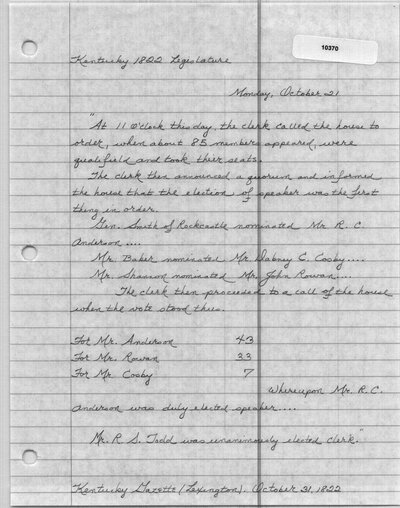 10370
Kentucky 1822 Legislature
Monday, October 21
"At 11 o'clock this day, the clerk called the house to
order, when about 85 members appeared, were
qualified and took their seats.
The clerk then announced a quorum and informed
the house that the election of speaker was the first
thing in order.
Gen. Smith of Rockcastle nominated Mr. R. C.
Anderson ....
Mr. Baker nominated Mr. Dabney C. Cosby ....
Mr. Shannon nominated Mr. John Rowan ....
The clerk then proceeded to a call of the house
when the vote stood thus.
For Mr. Anderson 43
For Mr. Rowan 33
For Mr. Cosby 7
Whereupon Mr. R. C.
Anderson was duly elected speaker ....
Mr. R. S. Todd was unanimously elected clerk."
Kentucky Gazette (Lexington). October 31, 1822